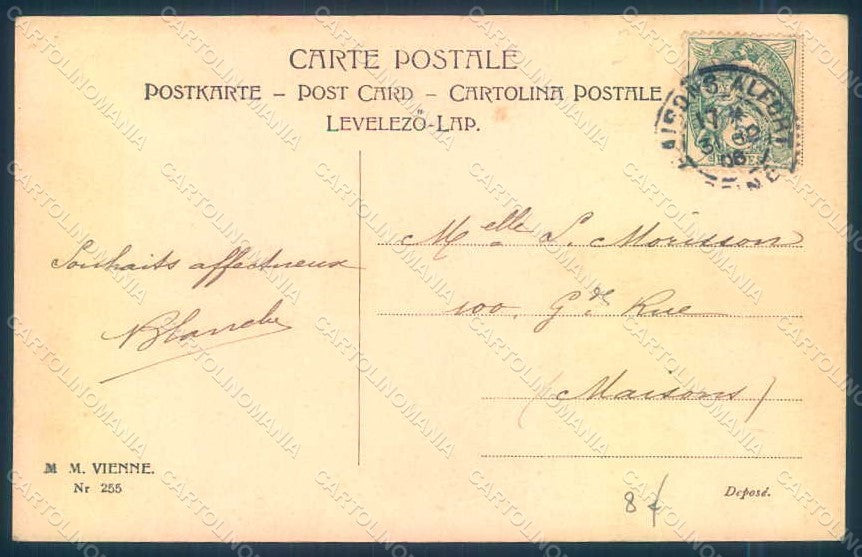 CARTE POSTALE
POSTKARTE – POST CARD – CARTOLINA POSTALE
LEVELEZŐ-LAP.
Souhaits affectueux
Blanche
Melle L. Moisson
100, Gde Rue
(Maisons)
M M. VIENNE.
Nr 255
8
Deposé.
MAISONS-ALFORT
17 *
3
06
SEINE
CARTOLINOMANIA